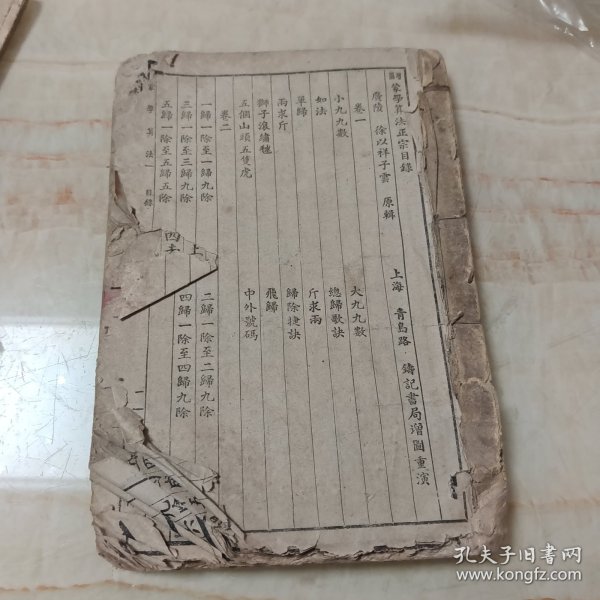 增圖蒙學算法正宗目錄
廣陵 徐以祥子雲 原輯 上海 青島路 鑄記書局增圖重演
卷一
小九九數 大九九數
如法 總歸歌訣
單歸 斤求兩
兩求斤 歸除捷訣
獅子滾繡毬 飛歸
五個山頭五隻虎 中外號碼
卷二
一歸一除至一歸九除 二歸一除至二歸九除
三歸一除至三歸九除 四歸一除至四歸九除
五歸一除至五歸五除
蒙學算法 目錄
孔夫子旧书网
www.kongfz.com